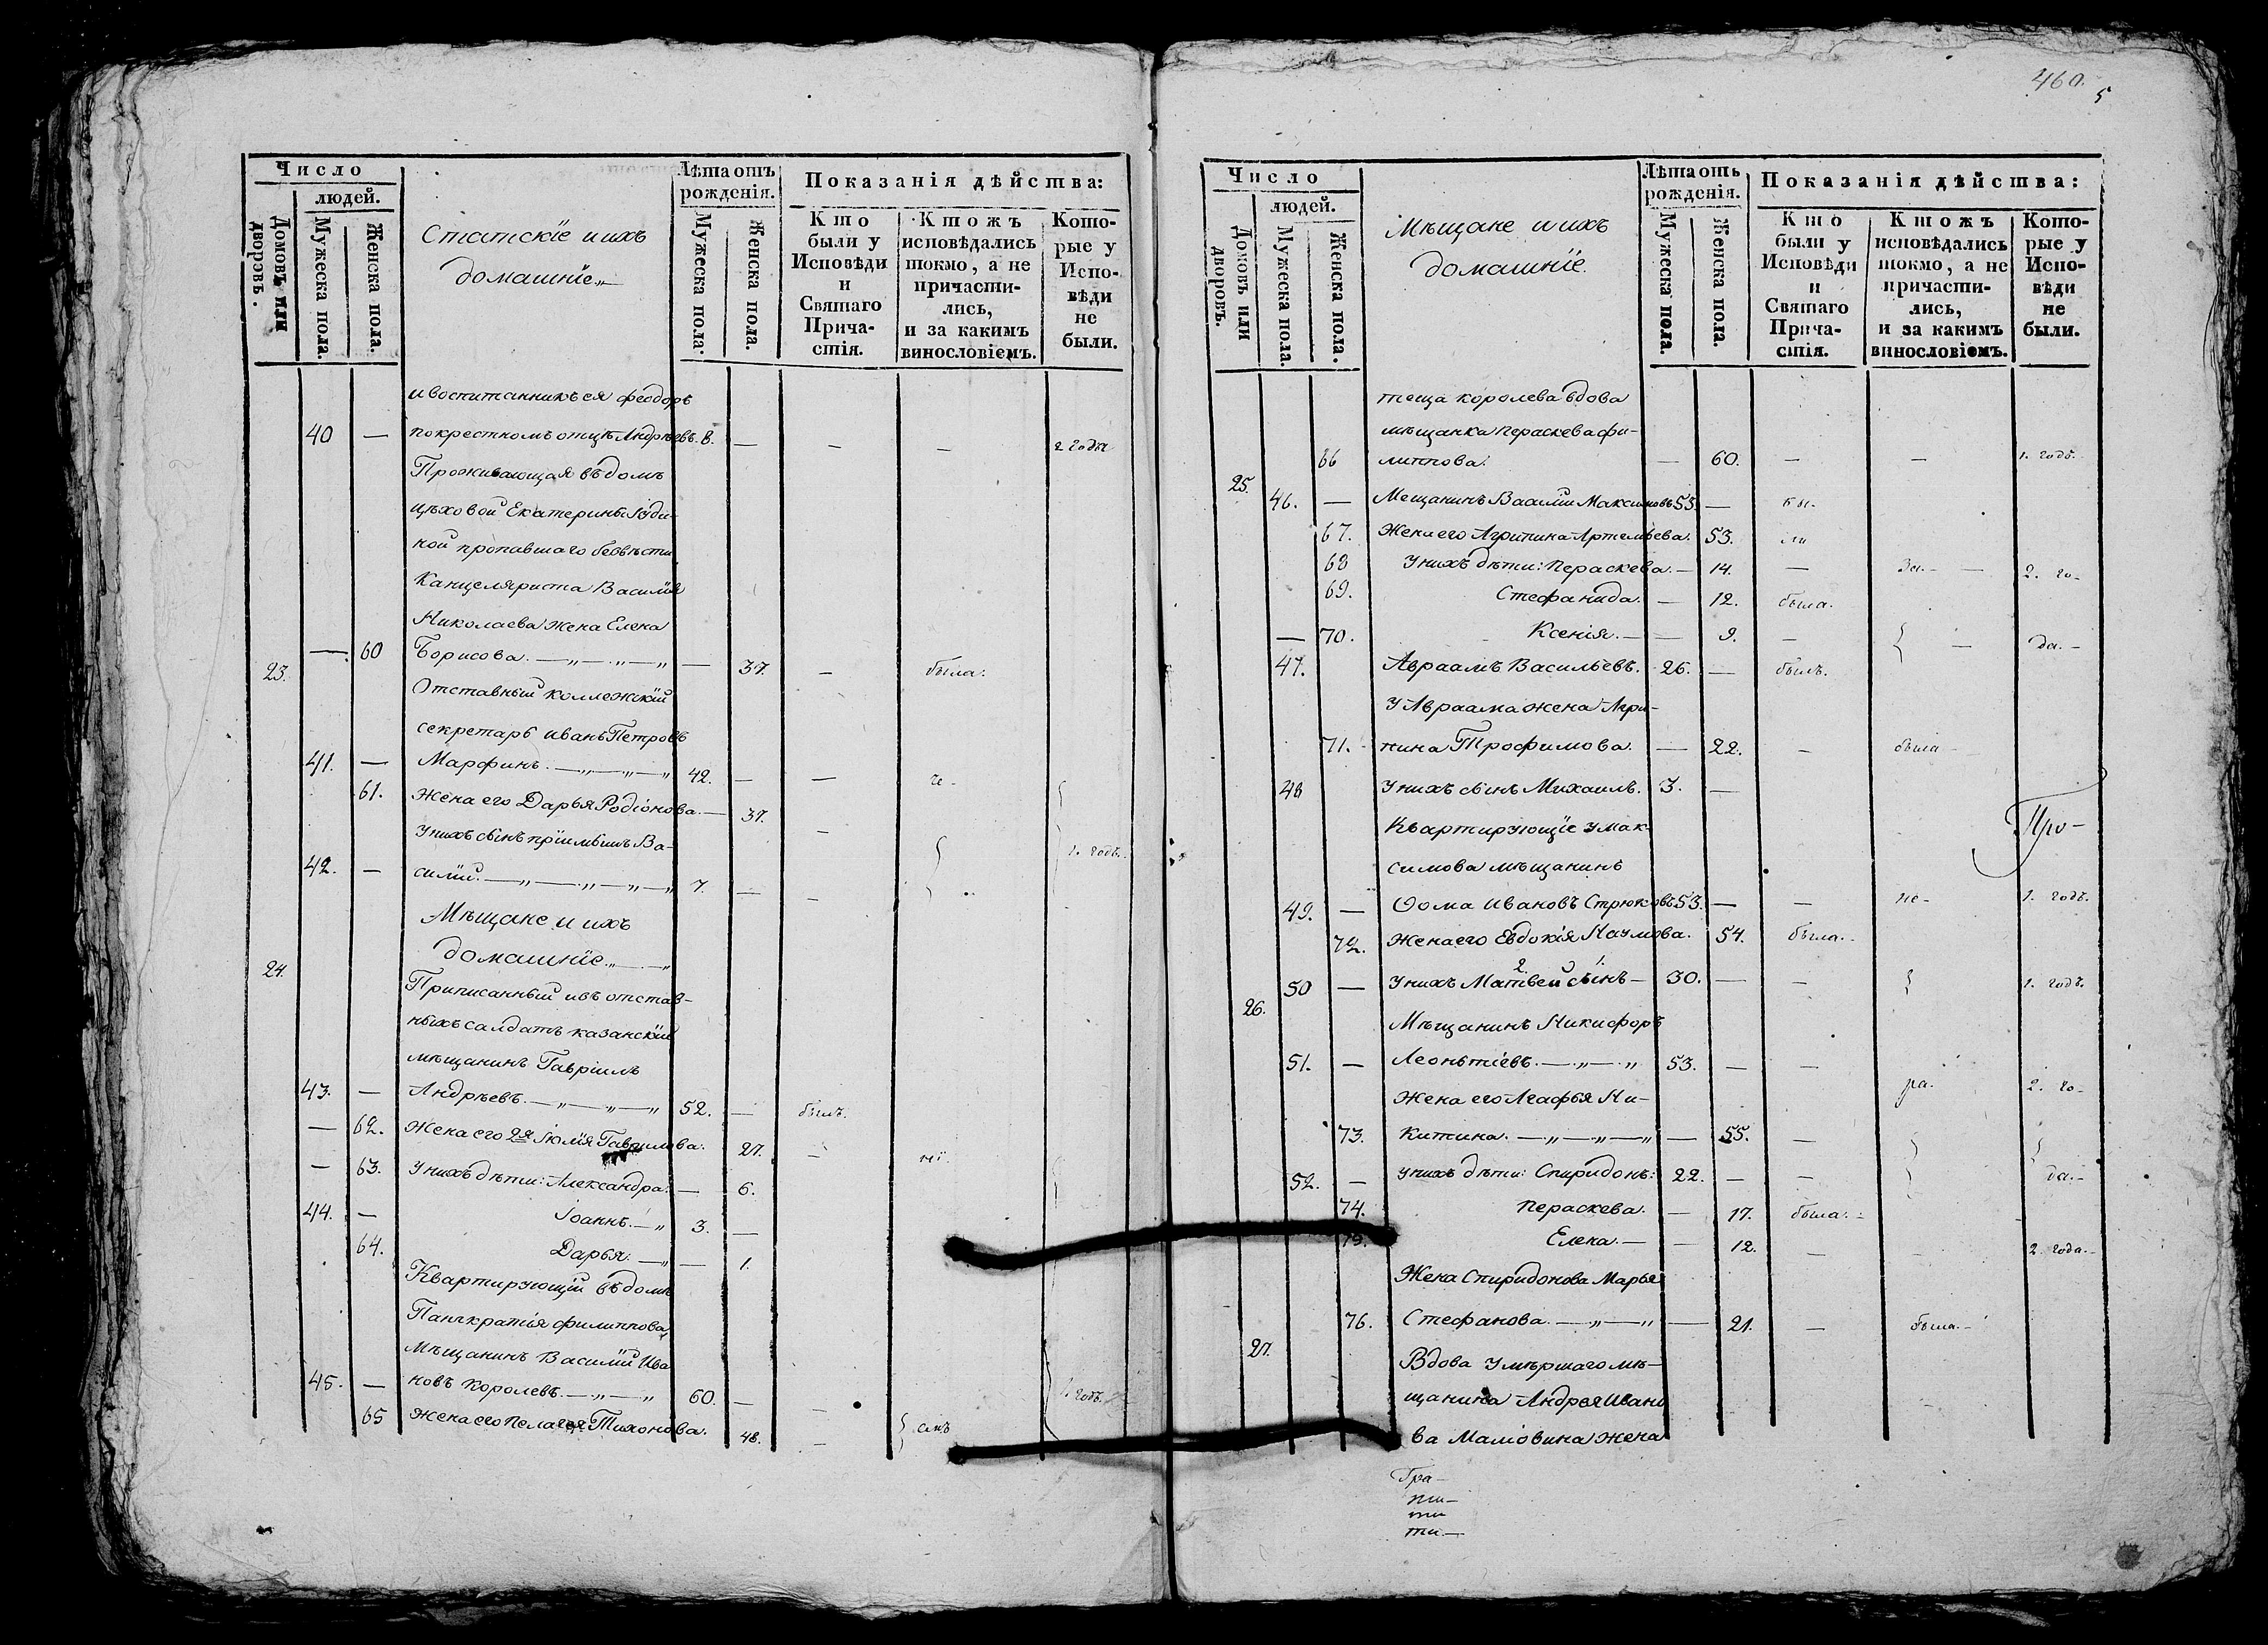 460.
5
Число
людей.
Домовъ или дворовъ.
Мужеска пола.
Женска пола.
Статскіе и ихъ
домашніе
Лѣта отъ рожденія.
Мужеска пола.
Женска пола.
Показанія дѣйства:
Кто были у Исповѣди и Святаго Причастія.
Ктожъ исповѣдались токмо, а не причастились, и за какимъ винословіемъ.
Которые у Исповѣди не были.
и воспитанникъ ея Феодоръ
40 — по крестномъ отцѣ Андрѣевъ. 8. — — — 2 года
Проживающая въ домѣ
цѣховой Екатерины
ной пропавшаго безвѣсти
Канцеляриста Василія
Николаева жена Елена
— 60 Борисова. — 37. — была.
23.
Отставный коллежскій
секретарь Иванъ Петровъ
41. — Марфинъ. 42. — — не-
61. Жена его Дарья Родіонова. — 37. —
У нихъ сынъ пріимышъ Ва-
42. — силій. 7. — — 1. годъ.
Мѣщане и ихъ
домашніе
24.
Приписанный изъ отстав-
ныхъ салдатъ казанскій
мѣщанинъ Гавріилъ
43. — Андрѣевъ. 52. — былъ.
— 62. Жена его 2я Іюлія Гаврилова. 27. —
— 63. У нихъ дѣти: Александра. — 6.
44. — Іоаннъ. 3. —
64. Дарья. — 1.
Квартирующій въ домѣ
Панкратія Филиппова,
Мѣщанинъ Василій Ива
45. — новъ Королевъ. 60. — — 1. годъ.
65 Жена его Пелагея Тихонова. 48. —
Число
людей.
Домовъ или дворовъ.
Мужеска пола.
Женска пола.
Мѣщане и ихъ
домашніе.
Лѣта отъ рожденія.
Мужеска пола.
Женска пола.
Показанія дѣйства:
Кто были у Исповѣди и Святаго Причастія.
Ктожъ исповѣдались токмо, а не причастились, и за какимъ винословіемъ.
Которые у Исповѣди не были.
теща Королева вдова
мѣщанка Параскева Фи-
66 липпова. — 60. — — 1. годъ.
25.
46. — Мещанинъ Василій Максимовъ 53. — бы-
67. Жена его Агрипина Артемьева. 53. ли
68 У нихъ дѣти: Пераскева. — 14. — За- — 2. го-
69. Стефанида. — 12. была.
— 70. Ксенія. — 9. — — да. -
47. Авраамъ Васильевъ. 26. — былъ.
У Авраама жена Агри-
71. пина Трофимова. — 22. — была
48 У нихъ сынъ Михаилъ. 3. —
Квартирующіе у Мак-
Про-
симова мѣщанинъ
49. — Ѳома Ивановъ Стрюковъ 53. — — не- 1. годъ.
72. Жена его Евдокія Наумова. 54. была.
50 — У нихъ Матвей сынъ — 30. — — 1. годъ.
26.
Мѣщанинъ Никифоръ
51. — Леонтіевъ. 53. — — ра. 2. го-
Жена его Агафья Ни-
73. китина. — 55. —
52. — У нихъ дѣти: Спиридонъ: 22. — — да.-
74. Пераскева. — 17. была.
75. Елена. — 12. — 2. года.-
Жена Спиридонова Марья
76. Стефанова. — 21. — была.-
27.
Вдова умѣршаго мѣ-
щанина Андрея Ивано
ва жена
Гра-